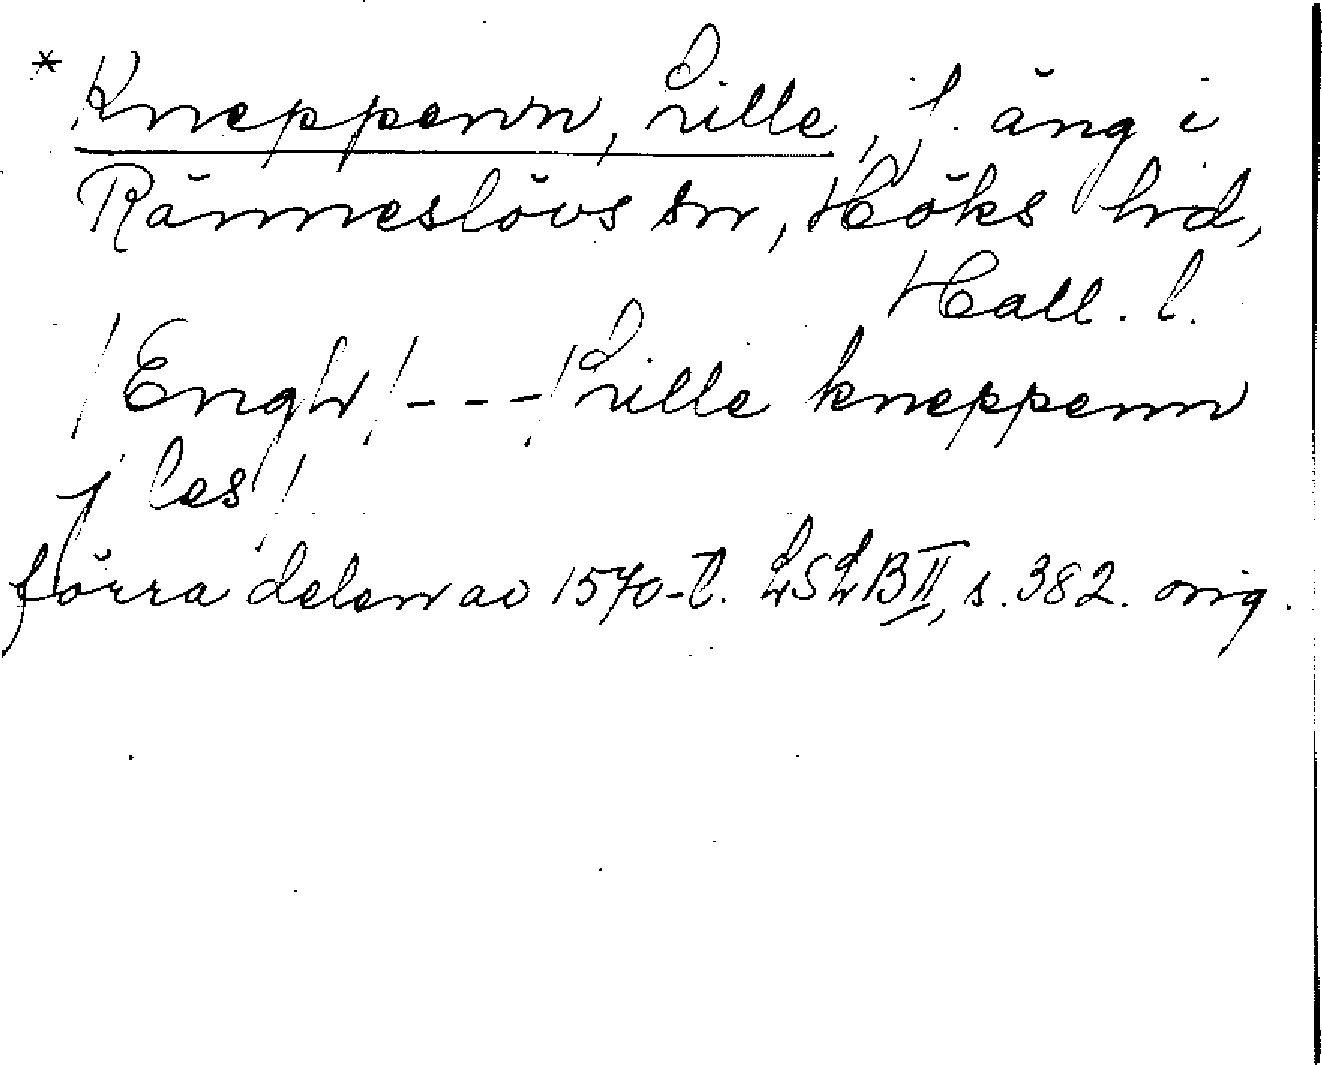 * Kneppenn, Lille, f. äng i
Ränneslövs sn, Höks hd,
Hall. l.
/Engh/ --- / Lille kneppenn
j les /
förra delen av 1570-t. LSLB II, s. 382. orig.